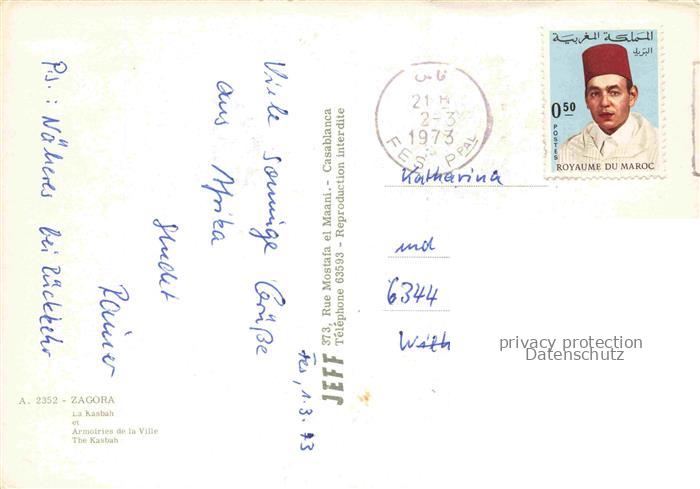 Fes, 1.3.73
Viele sonnige Grüße
aus Afrika
sendet
Rainer
P.S.: Näheres bei Rückkehr
A. 2352 - ZAGORA
La Kasbah
et
Armoiries de la Ville
The Kasbah
JEFF 373, Rue Mostafa el Maani. - Casablanca
Téléphone 63593 - Reproduction interdite
فاس
21 H
2-3
1973
FES PPAL
المملكة المغربية
البريد
0.50
POSTES
ROYAUME DU MAROC
Katharina
und
6344
privacy protection
Datenschutz